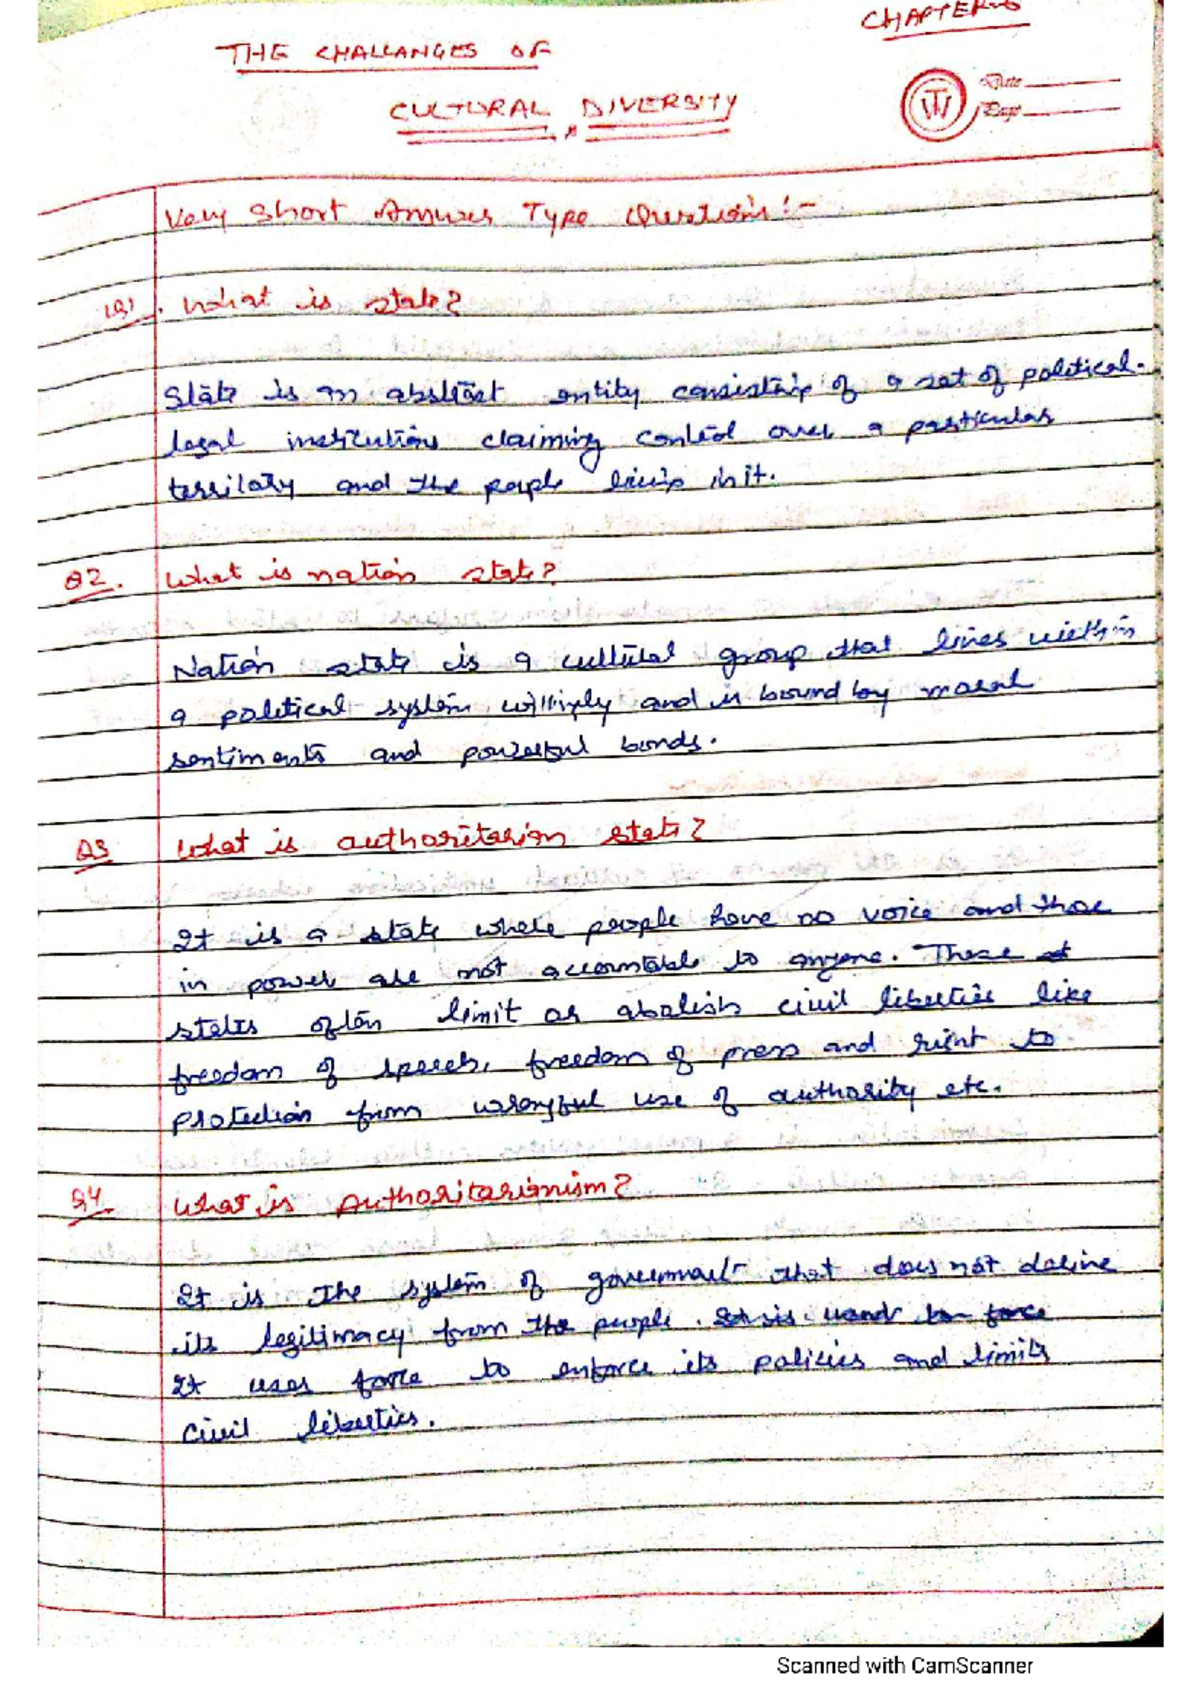 CHAPTER-6
THE CHALLANGES OF
CULTURAL DIVERSITY
Date
Page
Very Short Answer Type Questions:-
Q1. What is state?
State is an abstract entity consisting of a set of political-
legal institutions claiming control over a particular
territory and the people living in it.
Q2. What is nation state?
Nation state is a cultural group that lives within
a political system willingly and is bound by moral
sentiments and powerful bonds.
Q3 What is authoritarian state?
It is a state where people have no voice and those
in power are not accountable to anyone. These
states often limit or abolish civil liberties like
freedom of speech, freedom of press and right to
protection from wrongful use of authority etc.
Q4. What is Authoritarianism?
It is the system of government that does not derive
its legitimacy from the people. It is used to force
It uses force to enforce its policies and limits
civil liberties.
Scanned with CamScanner